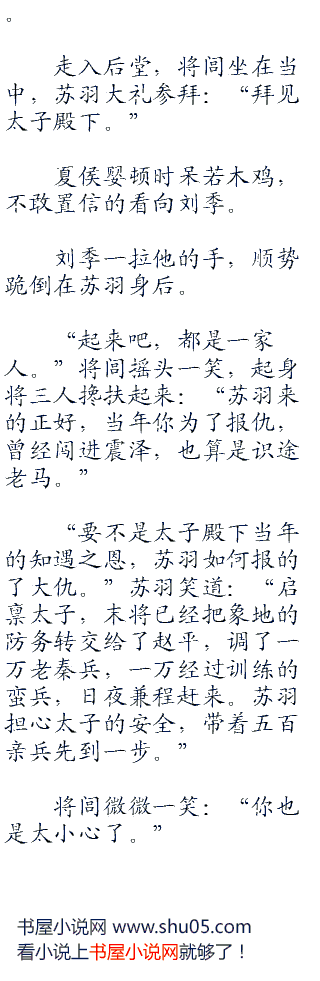 。
走入后堂，将闾坐在当
中，苏羽大礼参拜：“拜见
太子殿下。”
夏侯婴顿时呆若木鸡，
不敢置信的看向刘季。
刘季一拉他的手，顺势
跪倒在苏羽身后。
“起来吧，都是一家
人。”将闾摇头一笑，起身
将三人搀扶起来：“苏羽来
的正好，当年你为了报仇，
曾经闯进震泽，也算是识途
老马。”
“要不是太子殿下当年
的知遇之恩，苏羽如何报的
了大仇。”苏羽笑道：“启
禀太子，末将已经把象地的
防务转交给了赵平，调了一
万老秦兵，一万经过训练的
蛮兵，日夜兼程赶来。苏羽
担心太子的安全，带着五百
亲兵先到一步。”
将闾微微一笑：“你也
是太小心了。”
书屋小说网 www.shu05.com
看小说上书屋小说网就够了！